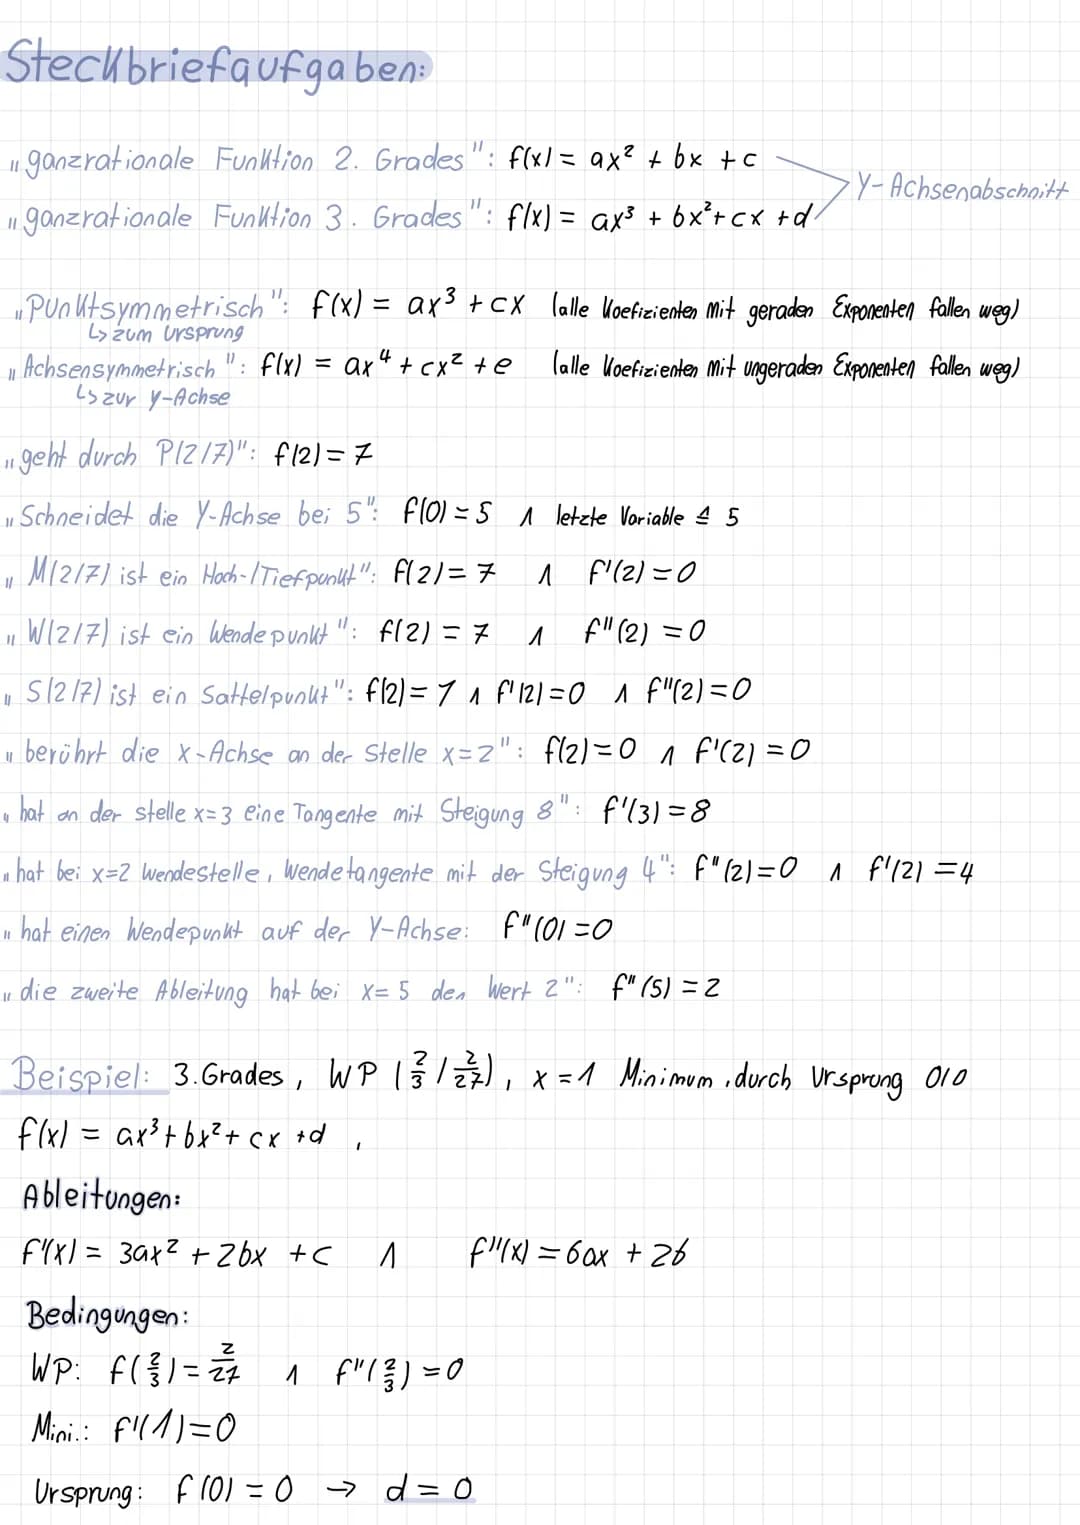 Steckbriefaufgaben:
"ganzrationale Funktion 2. Grades": f(x) = ax² + bx + c
Y-Achsenabschnitt
"ganzrationale Funktion 3. Grades": f(x) = ax³ + bx² + cx + d
"Punktsymmetrisch": f(x) = ax³ + cx (alle Koefizienten mit geraden Exponenten fallen weg)
↳ zum Ursprung
"Achsensymmetrisch": f(x) = ax⁴ + cx² + e (alle Koefizienten mit ungeraden Exponenten fallen weg)
↳ zur y-Achse
"geht durch P(2/7)": f(2) = 7
"Schneidet die Y-Achse bei 5": f(0) = 5 ∧ letzte Variable ≙ 5
"M(2/7) ist ein Hoch-/Tiefpunkt": f(2) = 7 ∧ f'(2) = 0
"W(2/7) ist ein Wendepunkt": f(2) = 7 ∧ f''(2) = 0
"S(2/7) ist ein Sattelpunkt": f(2) = 7 ∧ f'(2) = 0 ∧ f''(2) = 0
"berührt die x-Achse an der Stelle x=2": f(2) = 0 ∧ f'(2) = 0
"hat an der stelle x=3 eine Tangente mit Steigung 8": f'(3) = 8
"hat bei x=2 Wendestelle, Wendetangente mit der Steigung 4": f''(2) = 0 ∧ f'(2) = 4
"hat einen Wendepunkt auf der Y-Achse: f''(0) = 0
"die zweite Ableitung hat bei x=5 den Wert 2": f''(5) = 2
Beispiel: 3.Grades, WP (2/3 / 2/27), x = 1 Minimum, durch Ursprung 0/0
f(x) = ax³ + bx² + cx + d,
Ableitungen:
f'(x) = 3ax² + 2bx + c ∧ f''(x) = 6ax + 2b
Bedingungen:
WP: f(2/3) = 2/27 ∧ f''(2/3) = 0
Mini.: f'(1) = 0
Ursprung: f(0) = 0 → d = 0